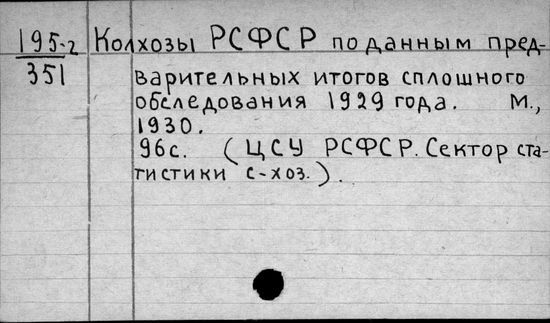 195-2 Колхозы РСФСР по данным пред-
351
варительных итогов сплошного
обследования 1929 года. М.,
1930.
96с. (ЦСУ РСФСР. Сектор ста-
тистики с-хоз.).